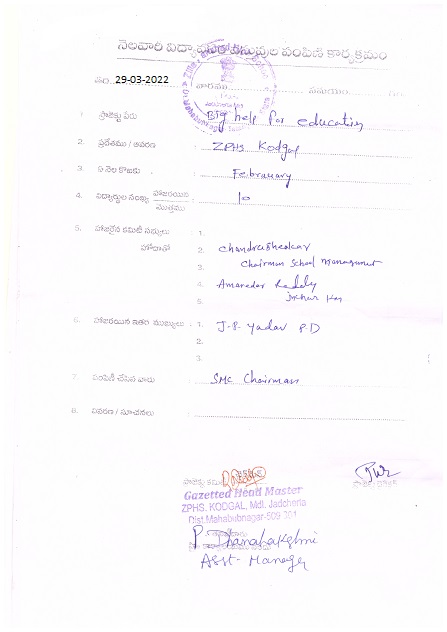 నెలవారి విద్యావసర వస్తువుల పంపిణి కార్యక్రమం
29-03-2022 వారము సమయం
1. ప్రాజెక్టు పేరు : Big help for education
2. ప్రదేశము / ఆవరణ : ZPHS Kodgal
3. ఏ నెల కొఱకు : Febrauary
4. విద్యార్థుల సంఖ్య హాజరయిన / మొత్తము : 10
5. హాజరైన కమిటీ సభ్యులు : 1.
హోదాతో 2. Chandrashekar
3. Chairman School Management
4. Amarender Reddy
5.
6. హాజరయిన ఇతర ముఖ్యులు : 1. J.P. Yadav P.D
2.
3.
7. పంపిణి చేసిన వారు : SMC Chairman
8. వివరణ / సూచనలు :
Gazetted Head Master
ZPHS. KODGAL, Mdl. Jadcherla
Dist.Mahabubnagar-509 301
P. Dhanalakshmi
Asst- Manager